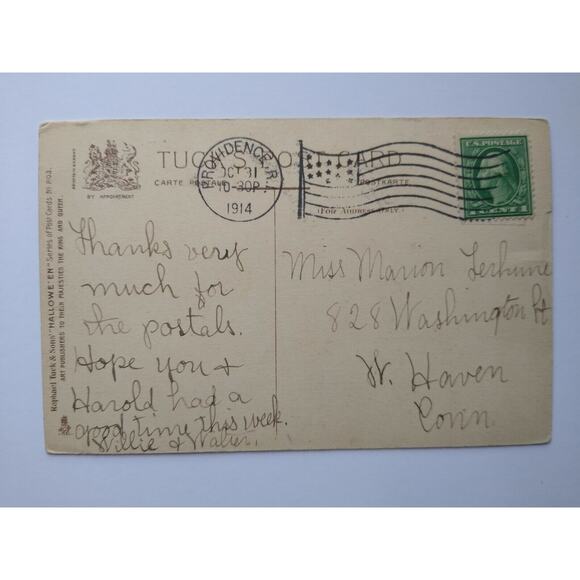 TUCK'S POST CARD
CARTE POSTALE
POSTKARTE
(FOR ADDRESS ONLY.)
BY APPOINTMENT
PROVIDENCE, R.I.
OCT 31
10-30P
1914
U.S. POSTAGE
1 CENT 1
Raphael Tuck & Sons' "HALLOWE'EN" Series of Post Cards № 803.
ART PUBLISHERS TO THEIR MAJESTIES THE KING AND QUEEN.
Thanks very
much for
the postals.
Hope you &
Harold had a
good time this week.
Willie & Walter.
Miss Marion Terhune
828 Washington
W. Haven
Conn.